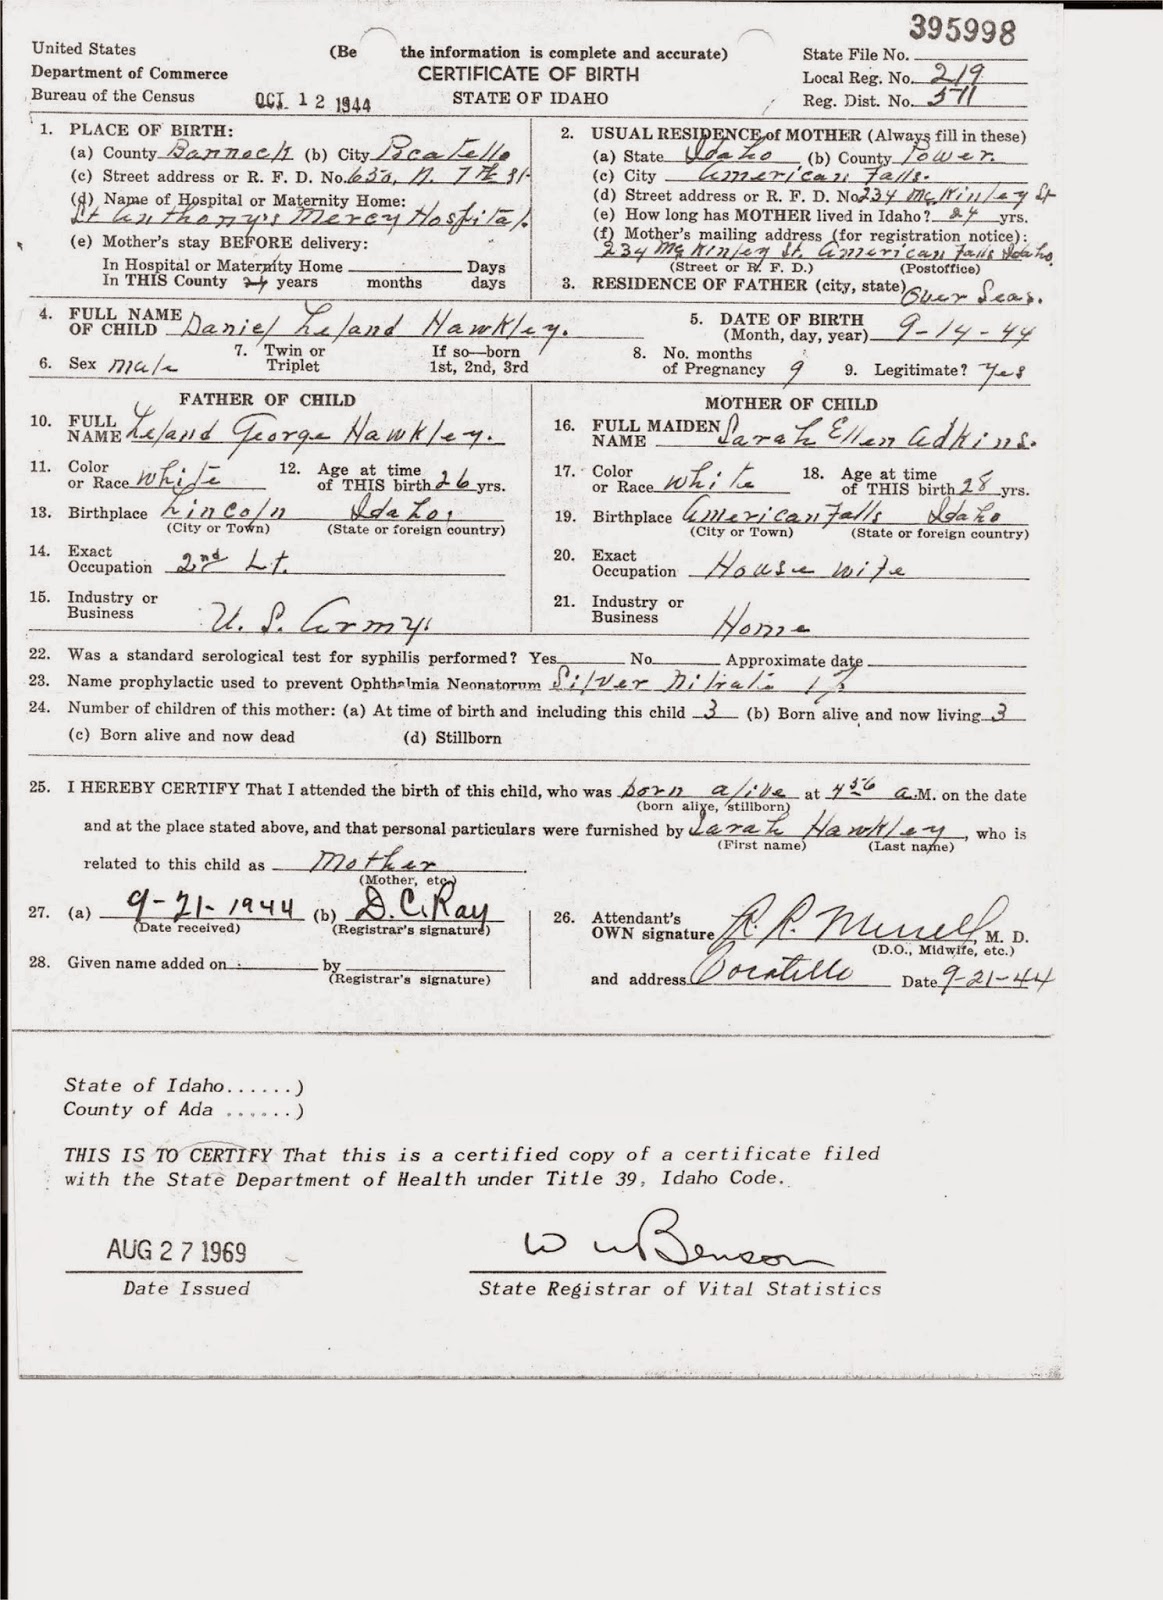 395998
United States (Be the information is complete and accurate) State File No.
Department of Commerce CERTIFICATE OF BIRTH Local Reg. No. 219
Bureau of the Census OCT 12 1944 STATE OF IDAHO Reg. Dist. No. 511
1. PLACE OF BIRTH:
(a) County Bannock (b) City Pocatello
(c) Street address or R. F. D. No. 650, N. 7th St
(d) Name of Hospital or Maternity Home:
St Anthony's Mercy Hospital.
(e) Mother's stay BEFORE delivery:
In Hospital or Maternity Home Days
In THIS County 24 years months days
2. USUAL RESIDENCE of MOTHER (Always fill in these)
(a) State Idaho (b) County Power.
(c) City American Falls.
(d) Street address or R. F. D. No. 234 McKinley St
(e) How long has MOTHER lived in Idaho? 24 yrs.
(f) Mother's mailing address (for registration notice):
234 McKinley St. American Falls Idaho.
(Street or R. F. D.) (Postoffice)
3. RESIDENCE OF FATHER (city, state) Over Seas.
4. FULL NAME
OF CHILD Daniel Leland Hawkley.
5. DATE OF BIRTH
(Month, day, year) 9-14-44
6. Sex male
7. Twin or
Triplet
If so—born
1st, 2nd, 3rd
8. No. months
of Pregnancy 9
9. Legitimate? Yes
FATHER OF CHILD
10. FULL
NAME Leland George Hawkley.
11. Color
or Race White
12. Age at time
of THIS birth 26 yrs.
13. Birthplace Lincoln Idaho.
(City or Town) (State or foreign country)
14. Exact
Occupation 2nd Lt.
15. Industry or
Business U. S. Army.
MOTHER OF CHILD
16. FULL MAIDEN
NAME Sarah Ellen Adkins.
17. Color
or Race White
18. Age at time
of THIS birth 28 yrs.
19. Birthplace American Falls Idaho
(City or Town) (State or foreign country)
20. Exact
Occupation House wife
21. Industry or
Business Home
22. Was a standard serological test for syphilis performed? Yes No Approximate date
23. Name prophylactic used to prevent Ophthalmia Neonatorum Silver Nitrate 1%
24. Number of children of this mother: (a) At time of birth and including this child 3 (b) Born alive and now living 3
(c) Born alive and now dead (d) Stillborn
25. I HEREBY CERTIFY That I attended the birth of this child, who was born alive at 4 56 a.M. on the date
(born alive, stillborn)
and at the place stated above, and that personal particulars were furnished by Sarah Hawkley, who is
(First name) (Last name)
related to this child as Mother.
(Mother, etc.)
27. (a) 9-21-1944 (b) D. C. Ray
(Date received) (Registrar's signature)
28. Given name added on by
(Registrar's signature)
26. Attendant's
OWN signature R. R. Merrell, M. D.
(D.O., Midwife, etc.)
and address Pocatello Date 9-21-44
State of Idaho......)
County of Ada ......)
THIS IS TO CERTIFY That this is a certified copy of a certificate filed
with the State Department of Health under Title 39, Idaho Code.
AUG 27 1969 W W Benson
Date Issued State Registrar of Vital Statistics